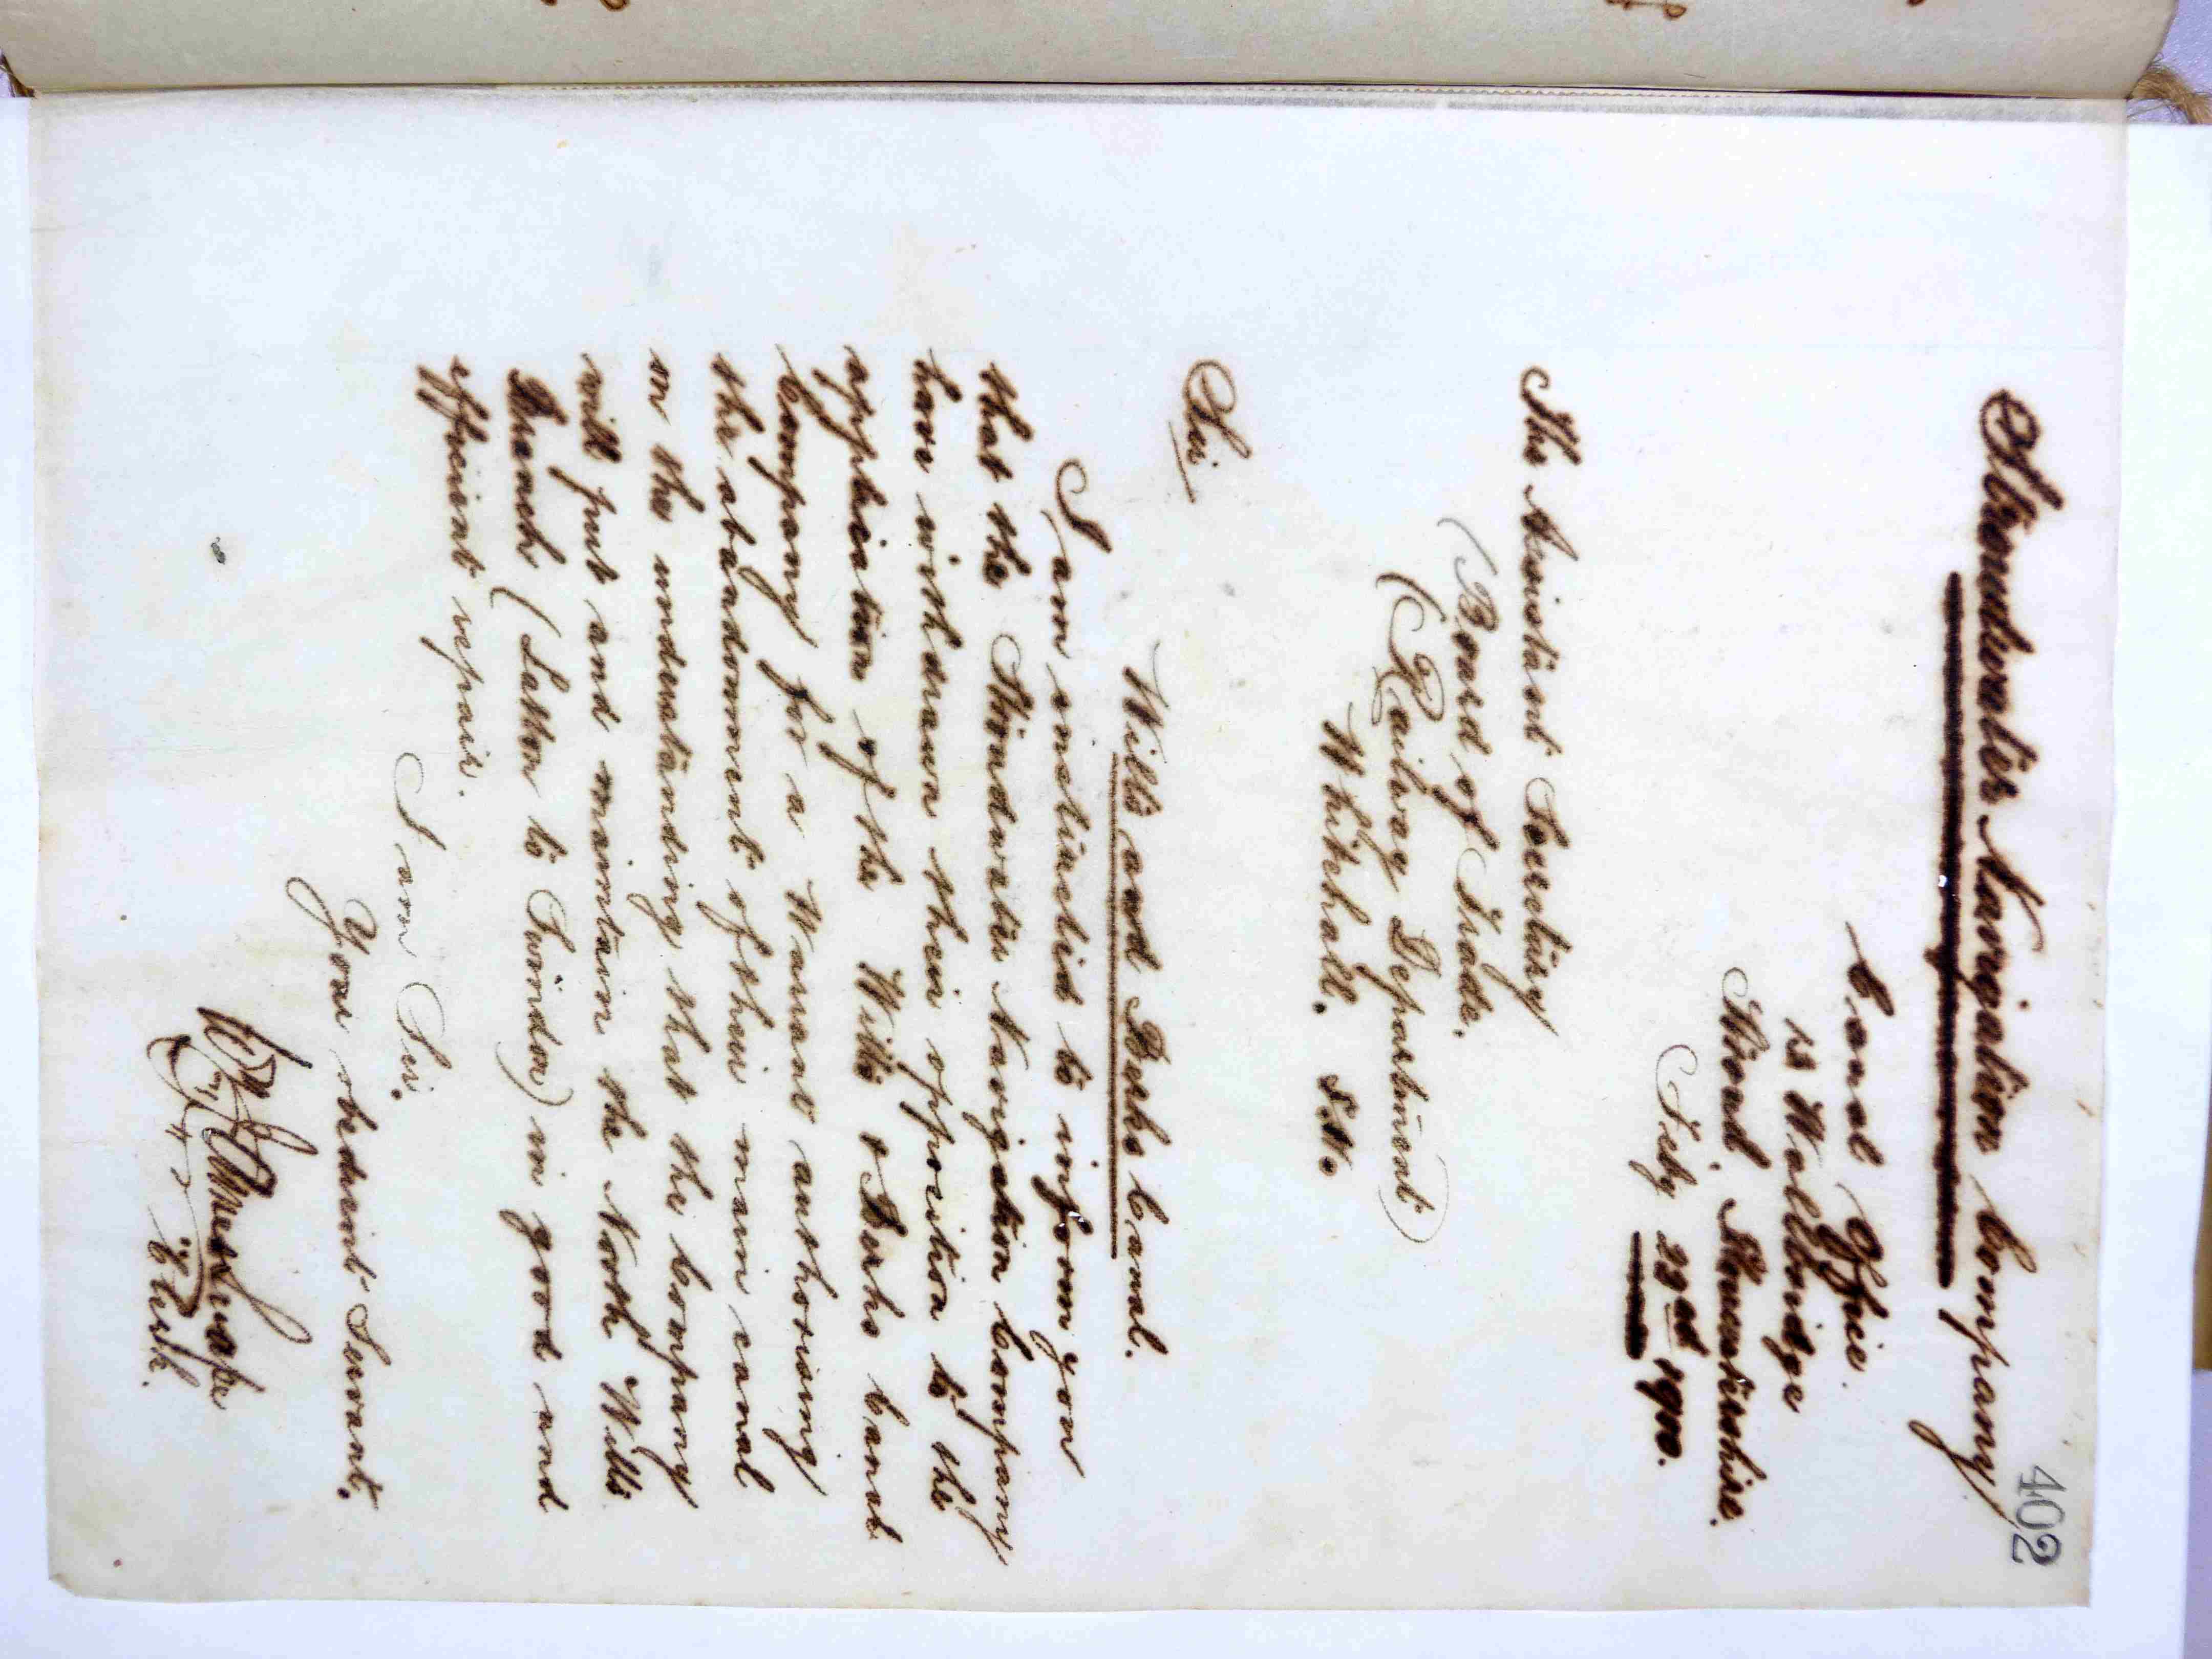 402
Stroudwater Navigation Company
Canal Office.
13 Wallbridge
Stroud, Gloucestershire.
Feby 23rd 1900.
The Assistant Secretary
(Board of Trade.
(Railway Department)
Whitehall. S.W.
Sir
Wilts and Berks Canal.
I am instructed to inform you
that the Stroudwater Navigation Company
have withdrawn their opposition to the
application of the Wilts & Berks Canal
Company for a Warrant authorising
the abandonment of their main canal
on the understanding that the Company
will put and maintain the North Wilts
Branch (Latton to Swindon) in good and
efficient repair.
I am Sir.
Your obedient Servant.
Snape
Clerk.